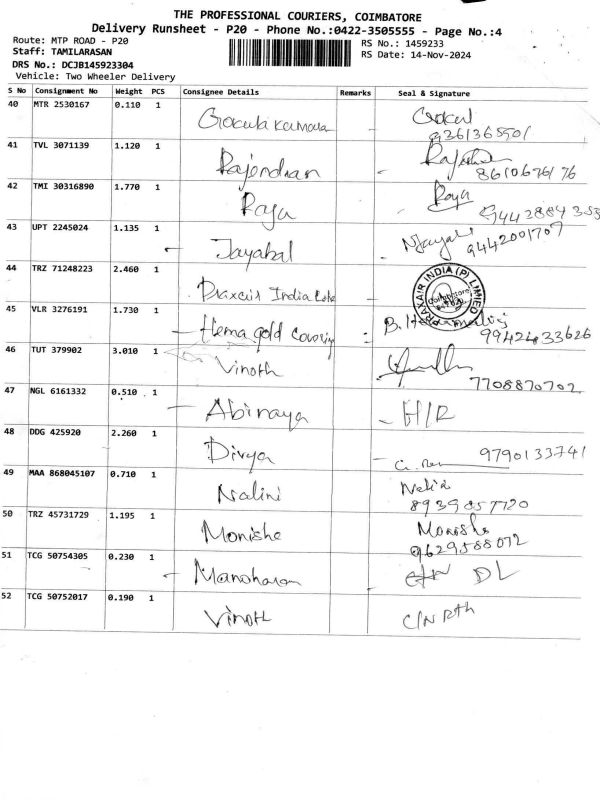 THE PROFESSIONAL COURIERS, COIMBATORE
Delivery Runsheet - P20 - Phone No.:0422-3505555 - Page No.:4
Route: MTP ROAD - P20
RS No.: 1459233
Staff: TAMILARASAN
RS Date: 14-Nov-2024
DRS No.: DCJB145923304
Vehicle: Two Wheeler Delivery
S No Consignment No Weight PCS Consignee Details Remarks Seal & Signature
40 MTR 2530167 0.110 1 Gokul
9361365501
41 TVL 3071139 1.120 1 Rajendran
8610676176
42 TMI 30316890 1.770 1 Raja Raja
9442884353
43 UPT 2245024 1.135 1 Jayabal
9442001707
44 TRZ 71248223 2.460 1 India PRAXAIR INDIA (P) LIMITED
45 VLR 3276191 1.730 1 Hema gold covering
9942433626
46 TUT 379902 3.010 1 Vinoth
7708870702
47 NGL 6161332 0.510 1 Abinaya
48 DDG 425920 2.260 1 Divya 9790133741
49 MAA 868045107 0.710 1 Nalini
50 TRZ 45731729 1.195 1 Monisha Monisha
9629588072
51 TCG 50754305 0.230 1 Manoharan DL
52 TCG 50752017 0.190 1 Vinoth